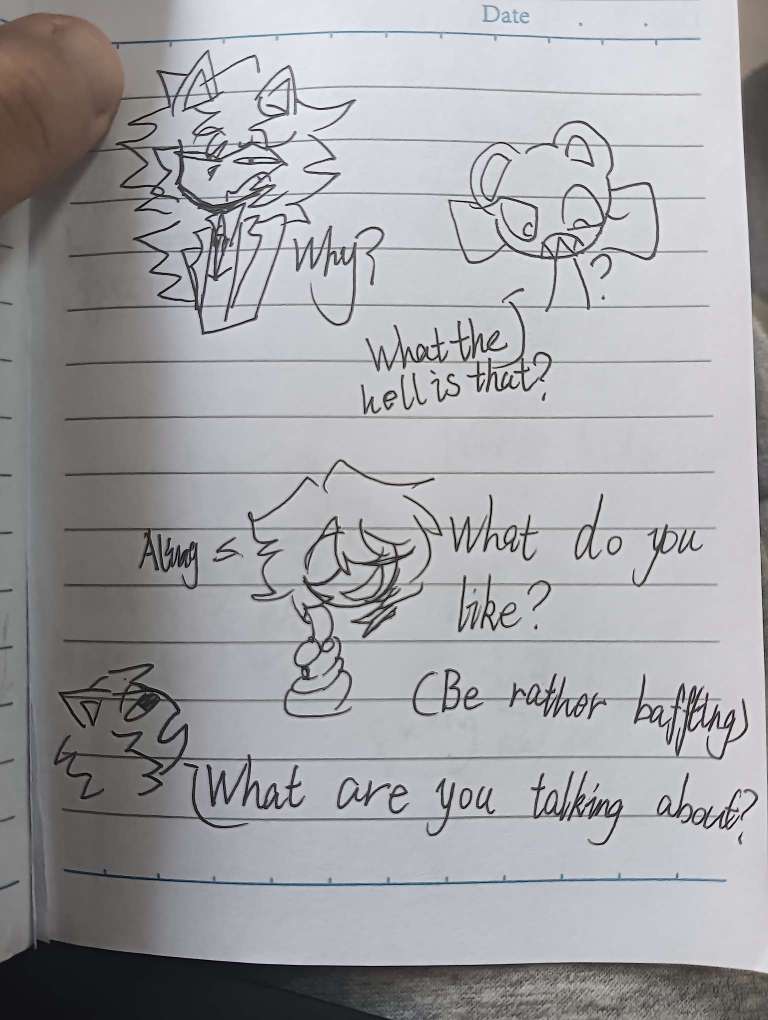 Date
Why?
?
What the
hell is that?
What do you
like?
(Be rather baffling)
What are you talking about?